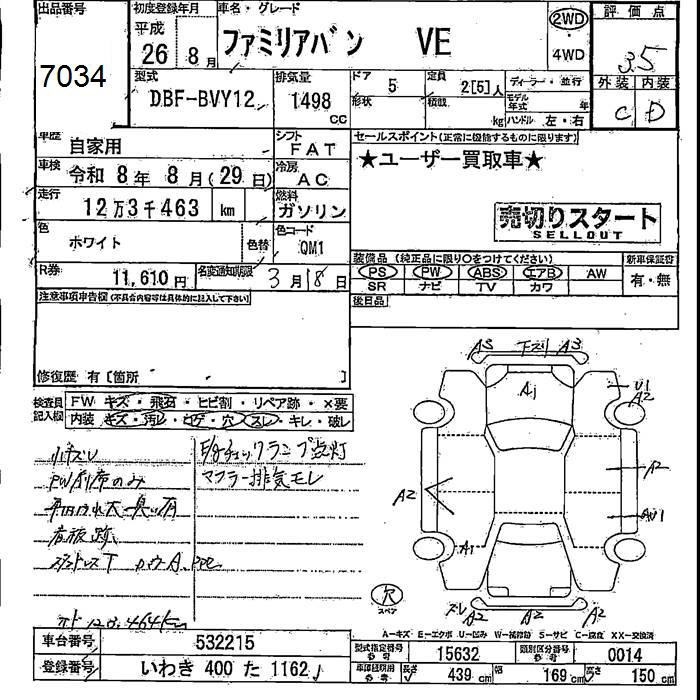 出品番号
7034
初度登録年月
平成
26年 8月
車名・グレード
ファミリアバン VE
2WD
・
4WD
評価点
3.5
外装 内装
C D
型式
DBF-BVY12
排気量
1498
CC
ドア 5
形状
定員 2[5]人
積載 kg
ディーラー・並行
モデル年式 年
ハンドル 左・右
車歴 自家用
シフト FAT
車検 令和 8年 8月(29日)
冷房 AC
走行 12万3千463 km
燃料 ガソリン
色 ホワイト
色替
色コード QM1
R券 11,610円
名変通知期限 3月18日
セールスポイント(正常に機能するものに限ります)
★ユーザー買取車★
売切りスタート
SELLOUT
装備品(純正品に限り○をつけてください)
新車保証書
PS PW ABS エアB AW
SR ナビ TV カワ
有・無
後日品
注意事項申告欄(不具合内容等は具体的に記入して下さい)
修復歴 有[箇所 ]
検査員記入欄
FW キズ・飛石・ヒビ割・リペア跡・×要
内装 キズ・汚レ・コゲ・穴・スレ・キレ・破レ
小キズU
E/gチェックランプ点灯
マフラー排気モレ
A3 下ズリ A3
Aj
U1
A2
A2
A2
AU1
A1
穴
スペア
ズレ A2 A2 A2
A-キズ E-エクボ U-凹み W-補修跡 S-サビ C-腐食 XX-交換済
車台番号 532215
登録番号 いわき 400 た 1162
型式指定番号 参考 15632
類別区分番号 参考 0014
長さ 439cm 幅 169cm 高さ 150cm